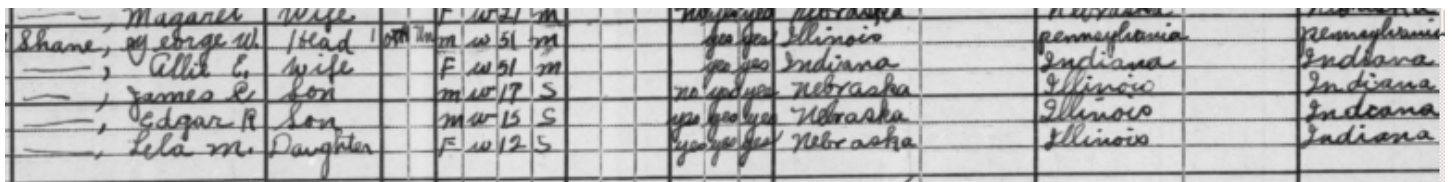 —, Magaret Wife F W 21 M no yes yes Nebraska Nebraska
Shane, George W. Head 1 M W 51 M yes yes Illinois Pennsylvania Pennsylvania
—, Allie E. Wife F W 51 M yes yes Indiana Indiana Indiana
—, James R Son M W 17 S no yes yes Nebraska Illinois Indiana
—, Edgar R Son M W 15 S yes yes yes Nebraska Illinois Indiana
—, Lela M. Daughter F W 12 S yes yes yes Nebraska Illinois Indiana